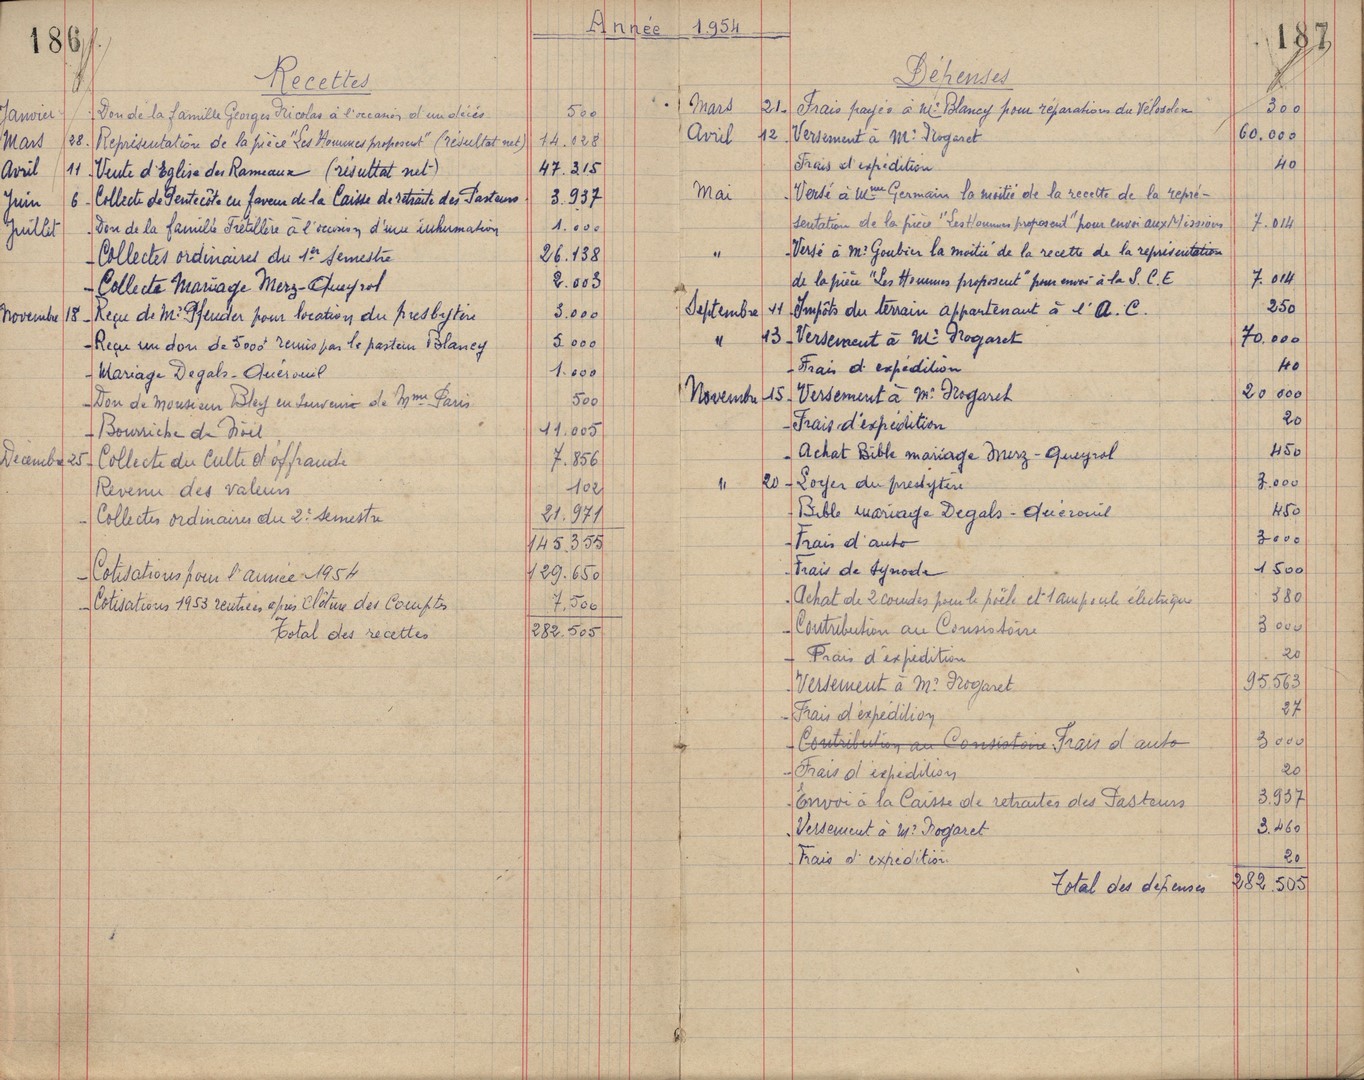 186
Année 1954
187
Recettes
Janvier - Don de la famille Georges Nicolas à l'occasion d'un décès 500
Mars 28. Représentation de la pièce "Les Hommes proposent" (résultat net) 14.028
Avril 11 - Vente d'Eglise des Rameaux (résultat net) 47.215
Juin 6 - Collecte de Pentecôte en faveur de la Caisse de retraite des Pasteurs 3.937
Juillet - Don de la famille Trétillère à l'occasion d'une inhumation 1.000
- Collectes ordinaires du 1er semestre 26.138
- Collecte Mariage Merz-Queyrol 2.003
Novembre 18 - Reçu de Mr Pfender pour location du presbytère 3.000
- Reçu un don de 5000f remis par le pasteur Blancy 5.000
- Mariage Degals-Quérouil 1.000
- Don de Monsieur Bley en souvenir de Mme Paris 500
- Bourriche de Noël 11.005
Décembre 25 - Collecte du Culte d'offrande 7.856
Revenu des valeurs 102
- Collectes ordinaires du 2e semestre 21.971
145.355
- Cotisations pour l'année 1954 129.650
- Cotisations 1953 rentrées après clôture des Comptes 7.500
Total des recettes 282.505
Dépenses
Mars 21 - Frais payés à Mr Blancy pour réparations du Vélosolex 300
Avril 12 - Versement à Mr Nogaret 60.000
Frais d'expédition 40
Mai - Versé à Mme Germain la moitié de la recette de la repré-
sentation de la pièce "Les Hommes proposent" pour envoi aux Missions 7.014
" - Versé à Mr Goubier la moitié de la recette de la représentation
de la pièce "Les Hommes proposent" pour envoi à la S.C.E 7.014
Septembre 11 - Impôts du terrain appartenant à l'A.C. 250
" 13 - Versement à Mr Nogaret 70.000
- Frais d'expédition 40
Novembre 15 - Versement à Mr Nogaret 20 000
- Frais d'expédition 20
- Achat Bible mariage Merz-Queyrol 450
" 20 - Loyer du presbytère 3.000
- Bible mariage Degals-Quérouil 450
- Frais d'auto 3000
- Frais de Synode 1500
- Achat de 2 coudes pour le poêle et 1 ampoule électrique 380
- Contribution au Consistoire 3 000
- Frais d'expédition 20
- Versement à Mr Nogaret 95.563
- Frais d'expédition 27
- Contribution au Consistoire Frais d'auto 3 000
- Frais d'expédition 20
- Envoi à la Caisse de retraites des Pasteurs 3.937
- Versement à Mr Nogaret 3.460
- Frais d'expédition 20
Total des dépenses 282.505